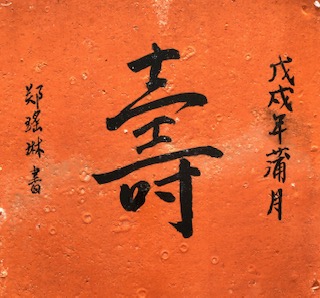 戊戌年蒲月
壽
郑瑤琳書